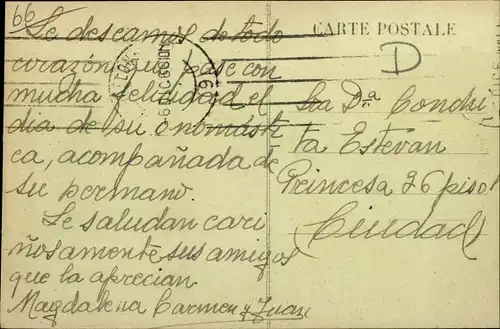 66
Le deseamos de todo
corazón que pase con
mucha felicidad el
dia de su onomásti
ca, acompañada de
su hermano.
Le saludan cari
ñosamente sus amigos
que la aprecian
Magdalena Carmen y Juan
CARTE POSTALE
D
Sra Dª Conchi
ta Estevan
Princesa 26 piso 1
(Ciudad)